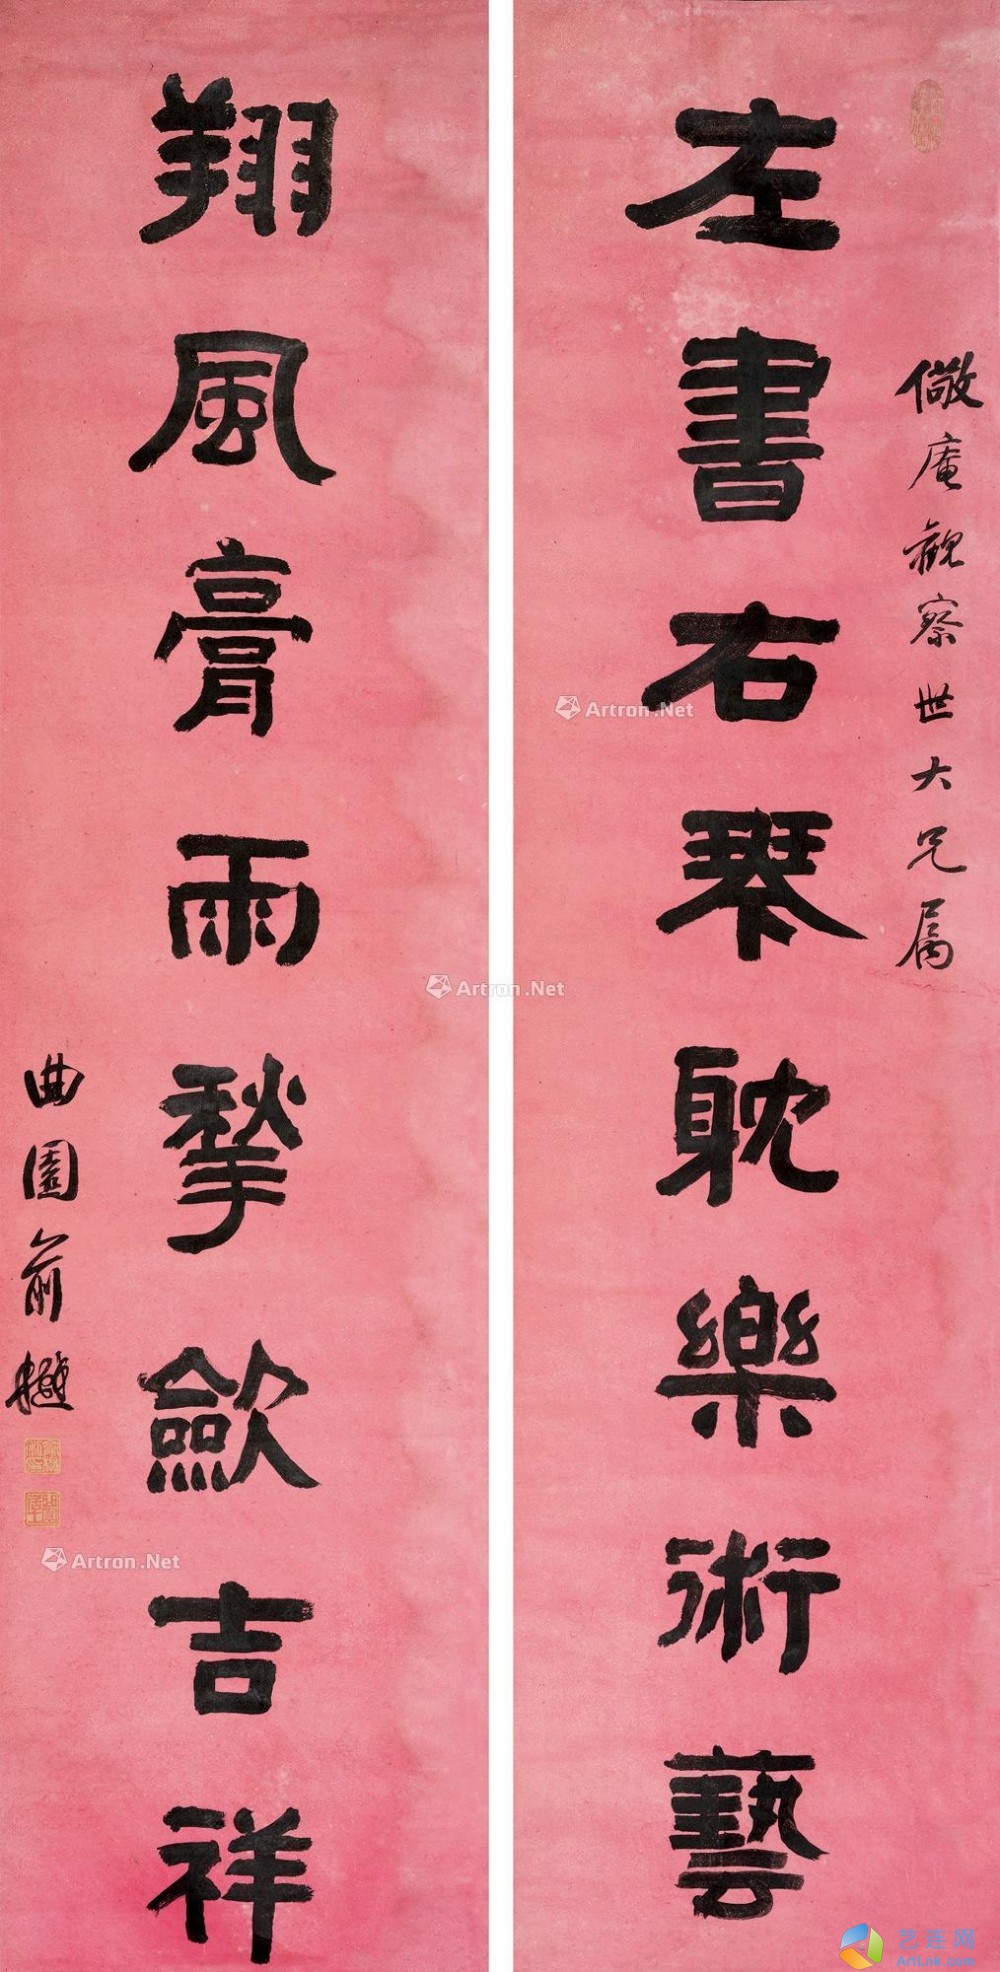 儆庵觀察世大兄属
左書右琴耽樂術藝
翔風膏雨揫斂吉祥
曲園俞樾
Artron.Net
Artron.Net
Artron.Net
艺连网
ArtLnk.com